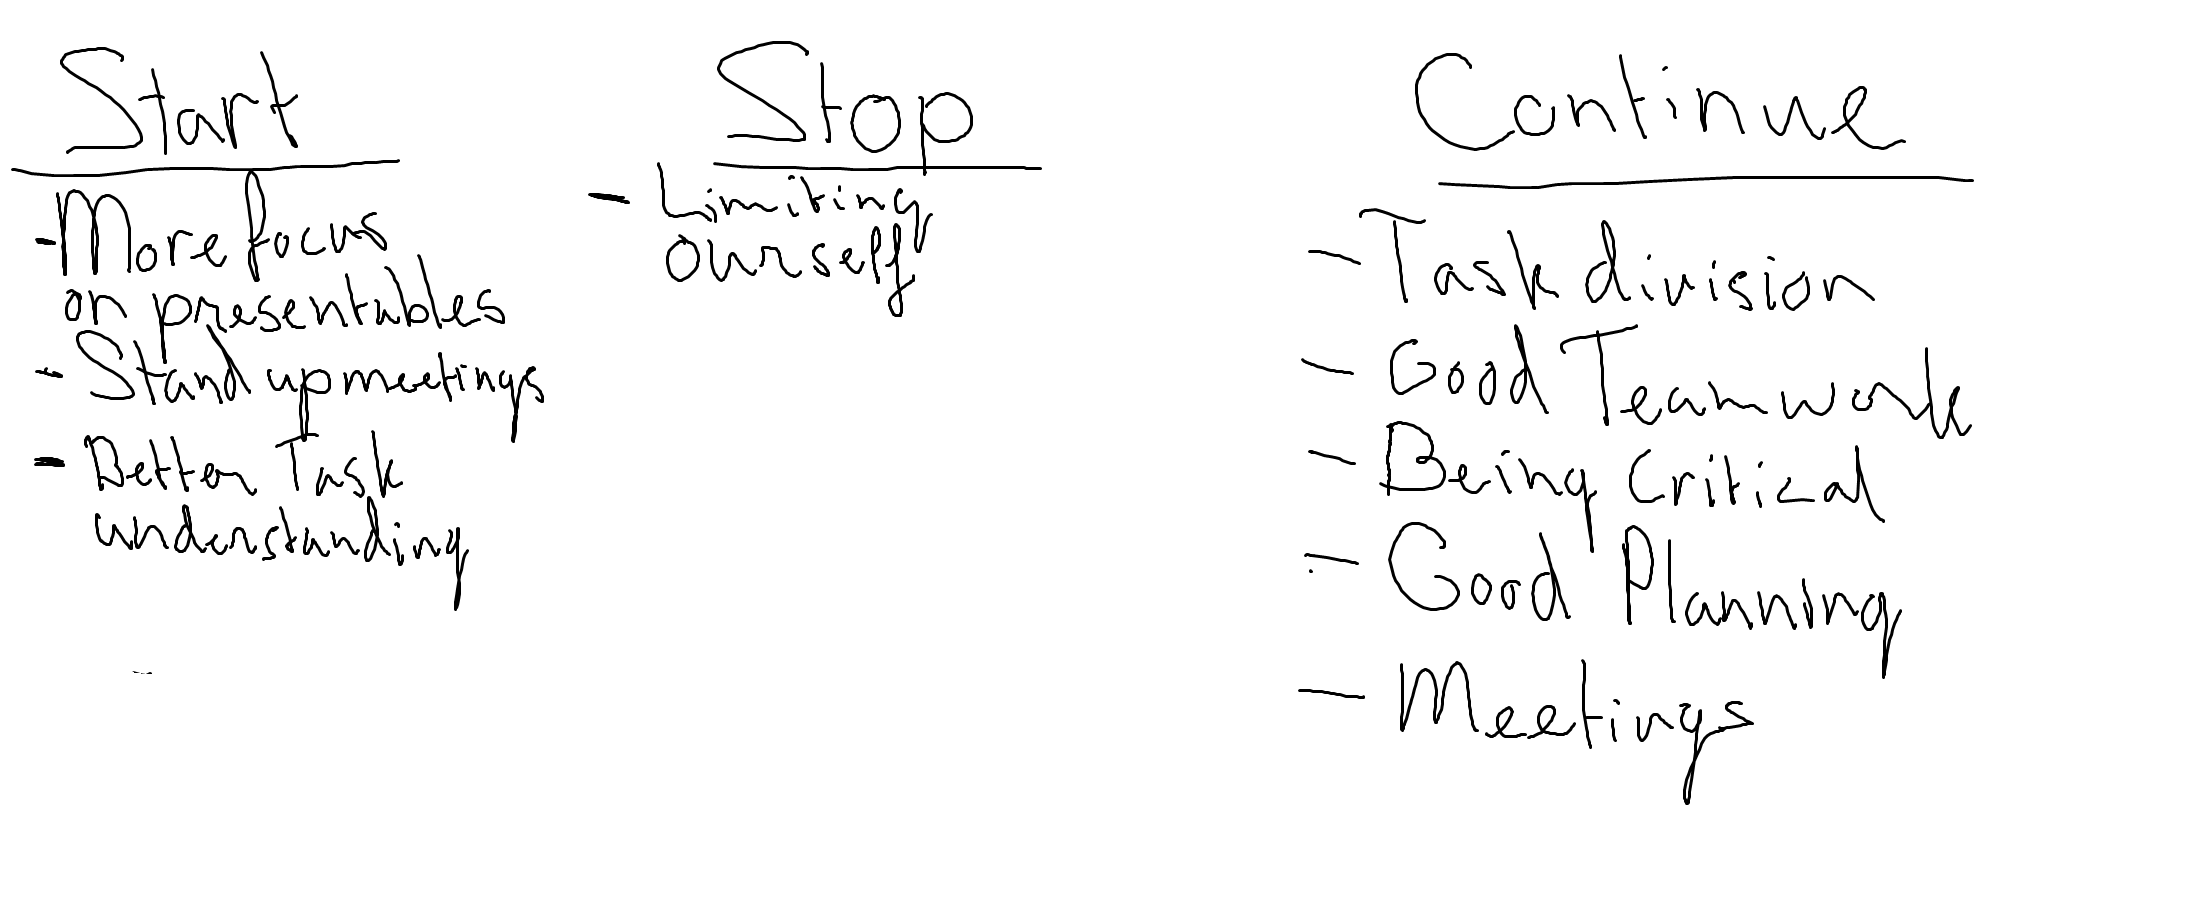 Start
- More focus
on presentables
- Stand up meetings
- Better Task
understanding
Stop
- Limiting
ourself
Continue
- Task division
- Good Teamwork
- Being Critical
- Good Planning
- Meetings